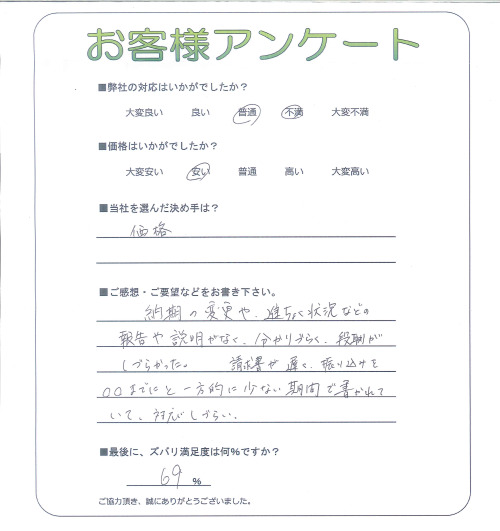 お客様アンケート
■弊社の対応はいかがでしたか？
大変良い 良い 普通 不満 大変不満
■価格はいかがでしたか？
大変安い 安い 普通 高い 大変高い
■当社を選んだ決め手は？
価格
■ご感想・ご要望などをお書き下さい。
納期の変更や、進ちょく状況などの
報告や説明がなく、分かりづらく、段取が
しづらかった。 請求書が遅く、振り込みを
○○までにと一方的に少ない期間で書かれて
いて、対応しづらい。
■最後に、ズバリ満足度は何%ですか？
69 %
ご協力頂き、誠にありがとうございました。